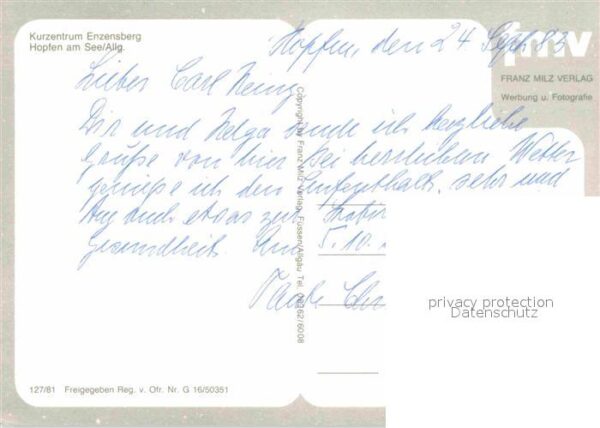 Kurzentrum Enzensberg
Hopfen am See/Allg.
Hopfen, den 24 Sept 83
fmv
FRANZ MILZ VERLAG
Werbung u. Fotografie
Lieber Carl Heinz
Dir und Helga sende ich herzliche
Grüße von hier Bei herrlichem Wetter
genieße ich den Aufenthalt. sehr und
auch etwas zur
Gesundheit. 5.10.
Copyright by Franz Milz Verlag, Füssen/Allgäu Tel. 08362/6008
privacy protection
Datenschutz
127/81 Freigegeben Reg. v. Ofr. Nr. G 16/50351